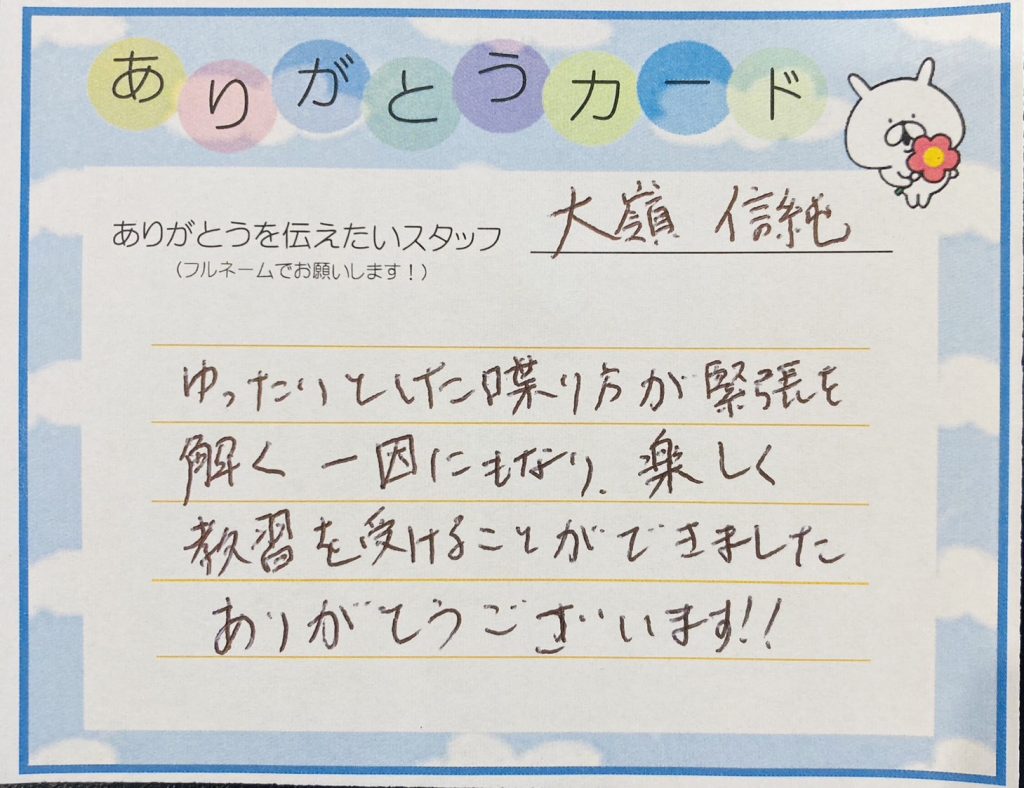 ありがとうカード
ありがとうを伝えたいスタッフ
大嶺 信純
(フルネームでお願いします!)
ゆったりとした喋り方が緊張を
解く一因にもなり、楽しく
教習を受けることができました
ありがとうございます!!